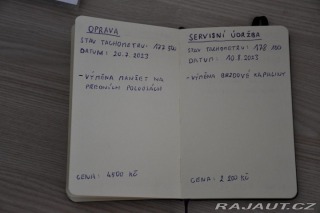 OPRAVA
STAV TACHOMETRU: 177
DATUM: 20.7.2023
- VÝMĚNA MANŽET NA
PŘEDNÍCH POLOOSÁCH
CENA: 4500 KČ
SERVISNÍ ÚDRŽBA
STAV TACHOMETRU: 178
DATUM: 10.8.2023
- VÝMĚNA BRZDOVÉ KAPALINY
CENA: 2 200 KČ
RAJAUT.CZ